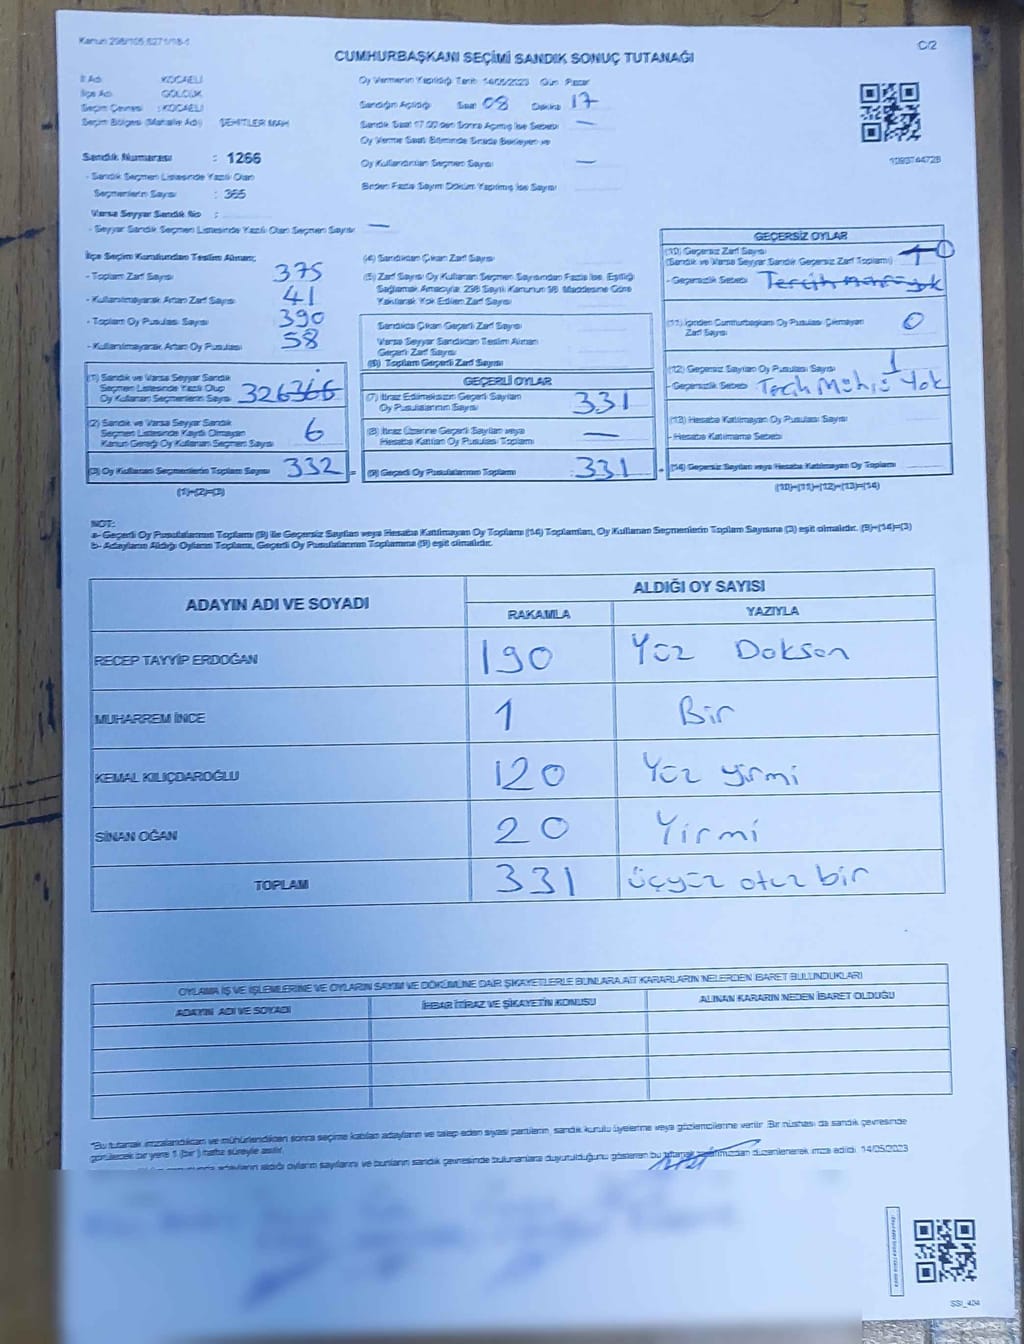 Kanun 298/105 6271/18-1
C/2
CUMHURBAŞKANI SEÇİMİ SANDIK SONUÇ TUTANAĞI
İl Adı KOCAELİ
İlçe Adı GÖLCÜK
Seçim Çevresi : KOCAELİ
Seçim Bölgesi (Mahalle Adı) ŞEHİTLER MAH
Sandık Numarası : 1266
- Sandık Seçmen Listesinde Yazılı Olan
Seçmenlerin Sayısı : 365
Varsa Seyyar Sandık No :
- Seyyar Sandık Seçmen Listesinde Yazılı Olan Seçmen Sayısı —
Oy Vermenin Yapıldığı Tarih 14/05/2023 Gün Pazar
Sandığın Açıldığı Saat 08 Dakika 17
Sandık Saat 17.00'den Sonra Açılmış İse Sebebi —
Oy Verme Saati Bitiminde Sırada Bekleyen ve
Oy Kullandırılan Seçmen Sayısı —
Birden Fazla Sayım Döküm Yapılmış İse Sayısı
1093744728
İlçe Seçim Kurulundan Teslim Alınan;
- Toplam Zarf Sayısı 375
- Kullanılmayarak Artan Zarf Sayısı 41
- Toplam Oy Pusulası Sayısı 390
- Kullanılmayarak Artan Oy Pusulası 58
(1) Sandık ve Varsa Seyyar Sandık
Seçmen Listesinde Yazılı Olup
Oy Kullanan Seçmenlerin Sayısı 326
(2) Sandık ve Varsa Seyyar Sandık
Seçmen Listesinde Kayıtlı Olmayan
Kanun Gereği Oy Kullanan Seçmen Sayısı 6
(3) Oy Kullanan Seçmenlerin Toplam Sayısı 332 =
(1)+(2)=(3)
(4) Sandıktan Çıkan Zarf Sayısı
(5) Zarf Sayısı Oy Kullanan Seçmen Sayısından Fazla İse, Eşitliği
Sağlamak Amacıyla, 298 Sayılı Kanunun 98. Maddesine Göre
Yakılarak Yok Edilen Zarf Sayısı
Sandıkta Çıkan Geçerli Zarf Sayısı
Varsa Seyyar Sandıktan Teslim Alınan
Geçerli Zarf Sayısı
(6) Toplam Geçerli Zarf Sayısı
GEÇERLİ OYLAR
(7) İtiraz Edilmeksizin Geçerli Sayılan
Oy Pusulalarının Sayısı 331
(8) İtiraz Üzerine Geçerli Sayılan veya
Hesaba Katılan Oy Pusulası Toplamı —
(9) Geçerli Oy Pusulalarının Toplamı 331 +
GEÇERSİZ OYLAR
(10) Geçersiz Zarf Sayısı
(Sandık ve Varsa Seyyar Sandık Geçersiz Zarf Toplamı) 1 0
- Geçersizlik Sebebi Tercih
(11) İçinden Cumhurbaşkanı Oy Pusulası Çıkmayan
Zarf Sayısı 0
(12) Geçersiz Sayılan Oy Pusulası Sayısı 1
- Geçersizlik Sebebi Tercih Mührü Yok
(13) Hesaba Katılmayan Oy Pusulası Sayısı
- Hesaba Katılmama Sebebi
(14) Geçersiz Sayılan veya Hesaba Katılmayan Oy Toplamı
(10)+(11)+(12)+(13)=(14)
NOT:
a- Geçerli Oy Pusulalarının Toplamı (9) ile Geçersiz Sayılan veya Hesaba Katılmayan Oy Toplamı (14) Toplamları, Oy Kullanan Seçmenlerin Toplam Sayısına (3) eşit olmalıdır. (9)+(14)=(3)
b- Adayların Aldığı Oyların Toplamı, Geçerli Oy Pusulalarının Toplamına (9) eşit olmalıdır.
ADAYIN ADI VE SOYADI
ALDIĞI OY SAYISI
RAKAMLA YAZIYLA
RECEP TAYYİP ERDOĞAN 190 Yüz Doksan
MUHARREM İNCE 1 Bir
KEMAL KILIÇDAROĞLU 120 Yüz yirmi
SİNAN OĞAN 20 Yirmi
TOPLAM 331 üçyüz otuz bir
OYLAMA İŞ VE İŞLEMLERİNE VE OYLARIN SAYIM VE DÖKÜMÜNE DAİR ŞİKAYETLERLE BUNLARA AİT KARARLARIN NELERDEN İBARET BULUNDUKLARI
ADAYIN ADI VE SOYADI İHBAR İTİRAZ VE ŞİKAYETİN KONUSU ALINAN KARARIN NEDEN İBARET OLDUĞU
*Bu tutanak imzalandıktan ve mühürlendikten sonra seçime katılan adayların ve talep eden siyasi partilerin, sandık kurulu üyelerine veya gözlemcilerine verilir. Bir nüshası da sandık çevresinde
görülecek bir yere 1 (bir) hafta süreyle asılır.
adayların aldığı oyların sayılarını ve bunların sandık çevresinde bulunanlara duyurulduğunu gösteren bu tutanak tarafımızdan düzenlenerek imza edildi. 14/05/2023
SSI_424